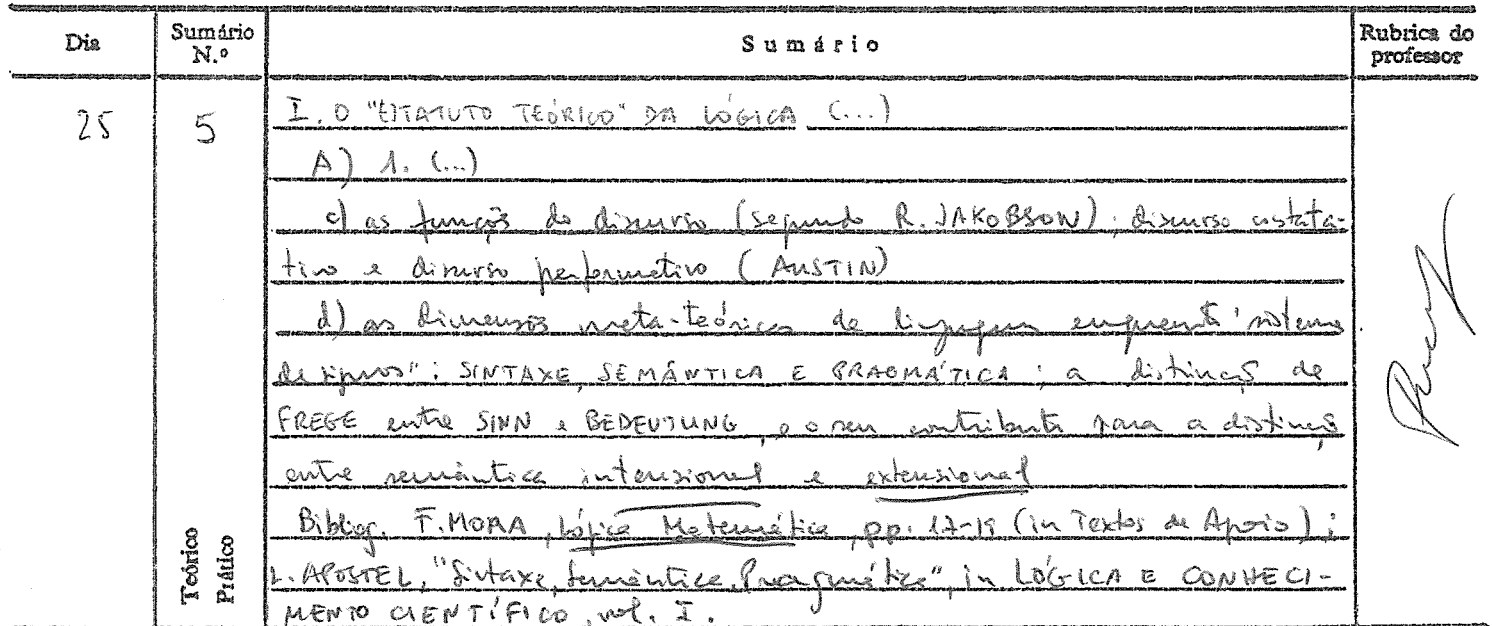 Dia Sumário N.º Sumário Rubrica do professor
25 5 I. O "ESTATUTO TEÓRICO" DA LÓGICA (...)
A) 1. (...)
c) as funções do discurso (segundo R. JAKOBSON); discurso constata-
tivo e discurso performativo (AUSTIN)
d) as dimensões meta-teóricas da linguagem enquanto "sistema
de signos": SINTAXE, SEMÂNTICA E PRAGMÁTICA; a distinção de
FREGE entre SINN e BEDEUTUNG, e o seu contributo para a distinção
entre semântica intensional e extensional
Bibliog. F. MORA, Lógica Matemática, pp. 17-19 (in Textos de Apoio);
L. APOSTEL, "Sintaxe, Semântica, Pragmática", in LÓGICA E CONHECI-
MENTO CIENTÍFICO, vol. I.
Teórico
Prático